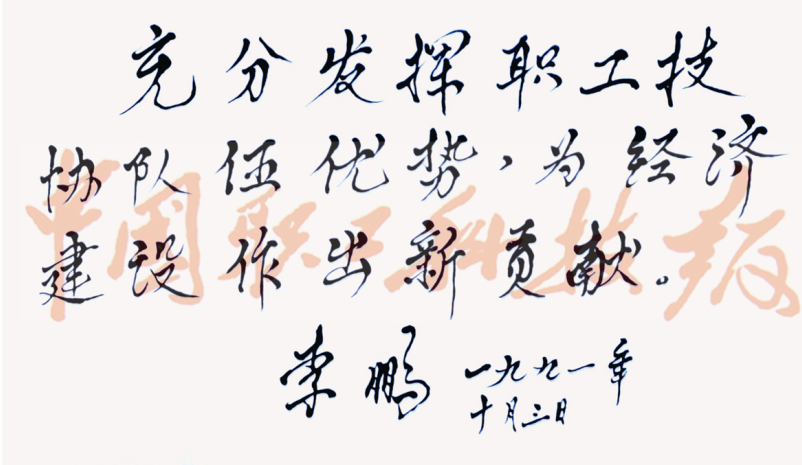 充分发挥职工技
协队伍优势,为经济
建设作出新贡献。
中国职工科技报
李鹏 一九九一年
十月三日